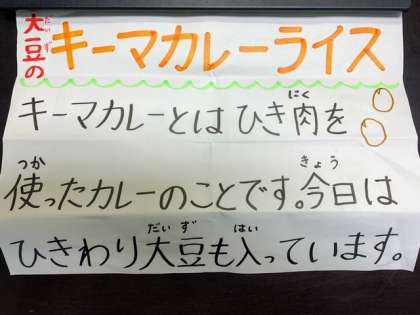 大豆のキーマカレーライス
キーマカレーとはひき肉を
使ったカレーのことです。今日は
ひきわり大豆も入っています。